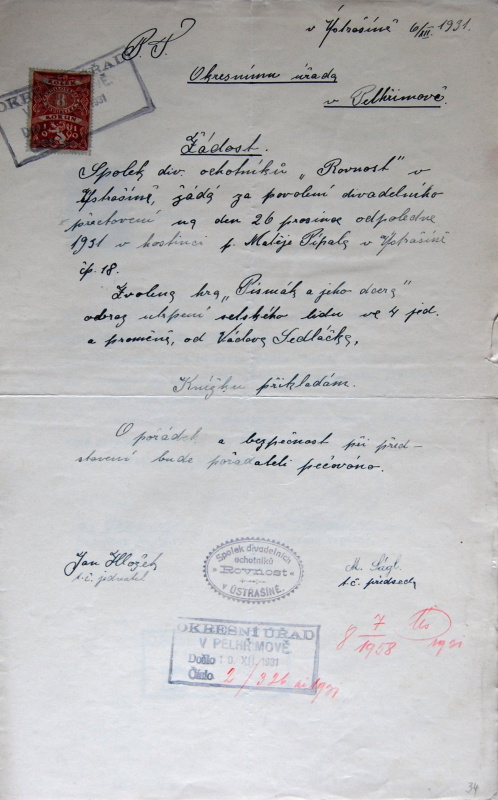 v Ústrašíně 6/XII. 1931.
P. T.
Okresnímu úřadu
v Pelhřimově.
KOLEK
8
KORUN
OKRESNÍ ÚŘAD
1931
Žádost.
Spolek div. ochotníků „Rovnost" v
Ústrašíně, žádá za povolení divadelního
přectavení na den 26 prosince odpoledne
1931 v hostinci p. Matěje Pípala v Ústrašíně
čp. 18.
Zvolena hra „Písmák a jeho dcera"
obraz utrpení selského lidu ve 4 jed.
a proměně, od Václava Sedláčka,
Knížku přikládám.
O pořádek a bezpečnost při před-
stavení bude pořadateli pečováno.
Jan
t.č. jednatel
Spolek divadelních
ochotníků
„Rovnost"
v ÚSTRAŠÍNĚ.
M.
t.č. předseda
OKRESNÍ ÚŘAD
V PELHŘIMOVĚ.
Došlo: XII. 1931
Číslo 2/326 ai 1931
8 7/1958
1931
34